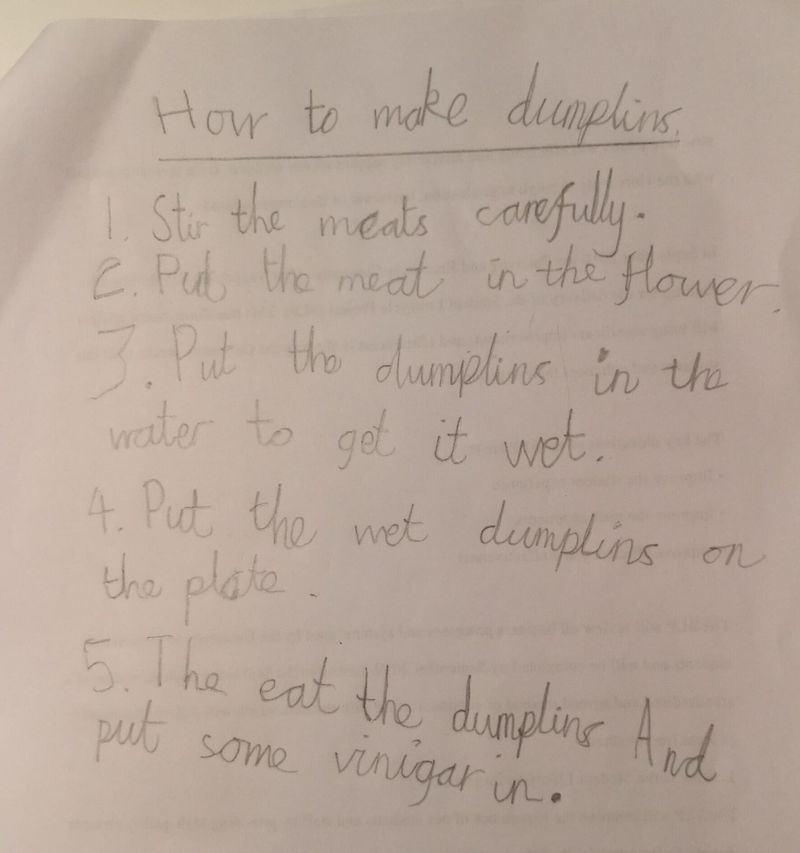 How to make dumplins.
1. Stir the meats carefully.
2. Put the meat in the flower.
3. Put the dumplins in the
water to get it wet.
4. Put the wet dumplins on
the plate.
5. The eat the dumplins And
put some vinigar in.